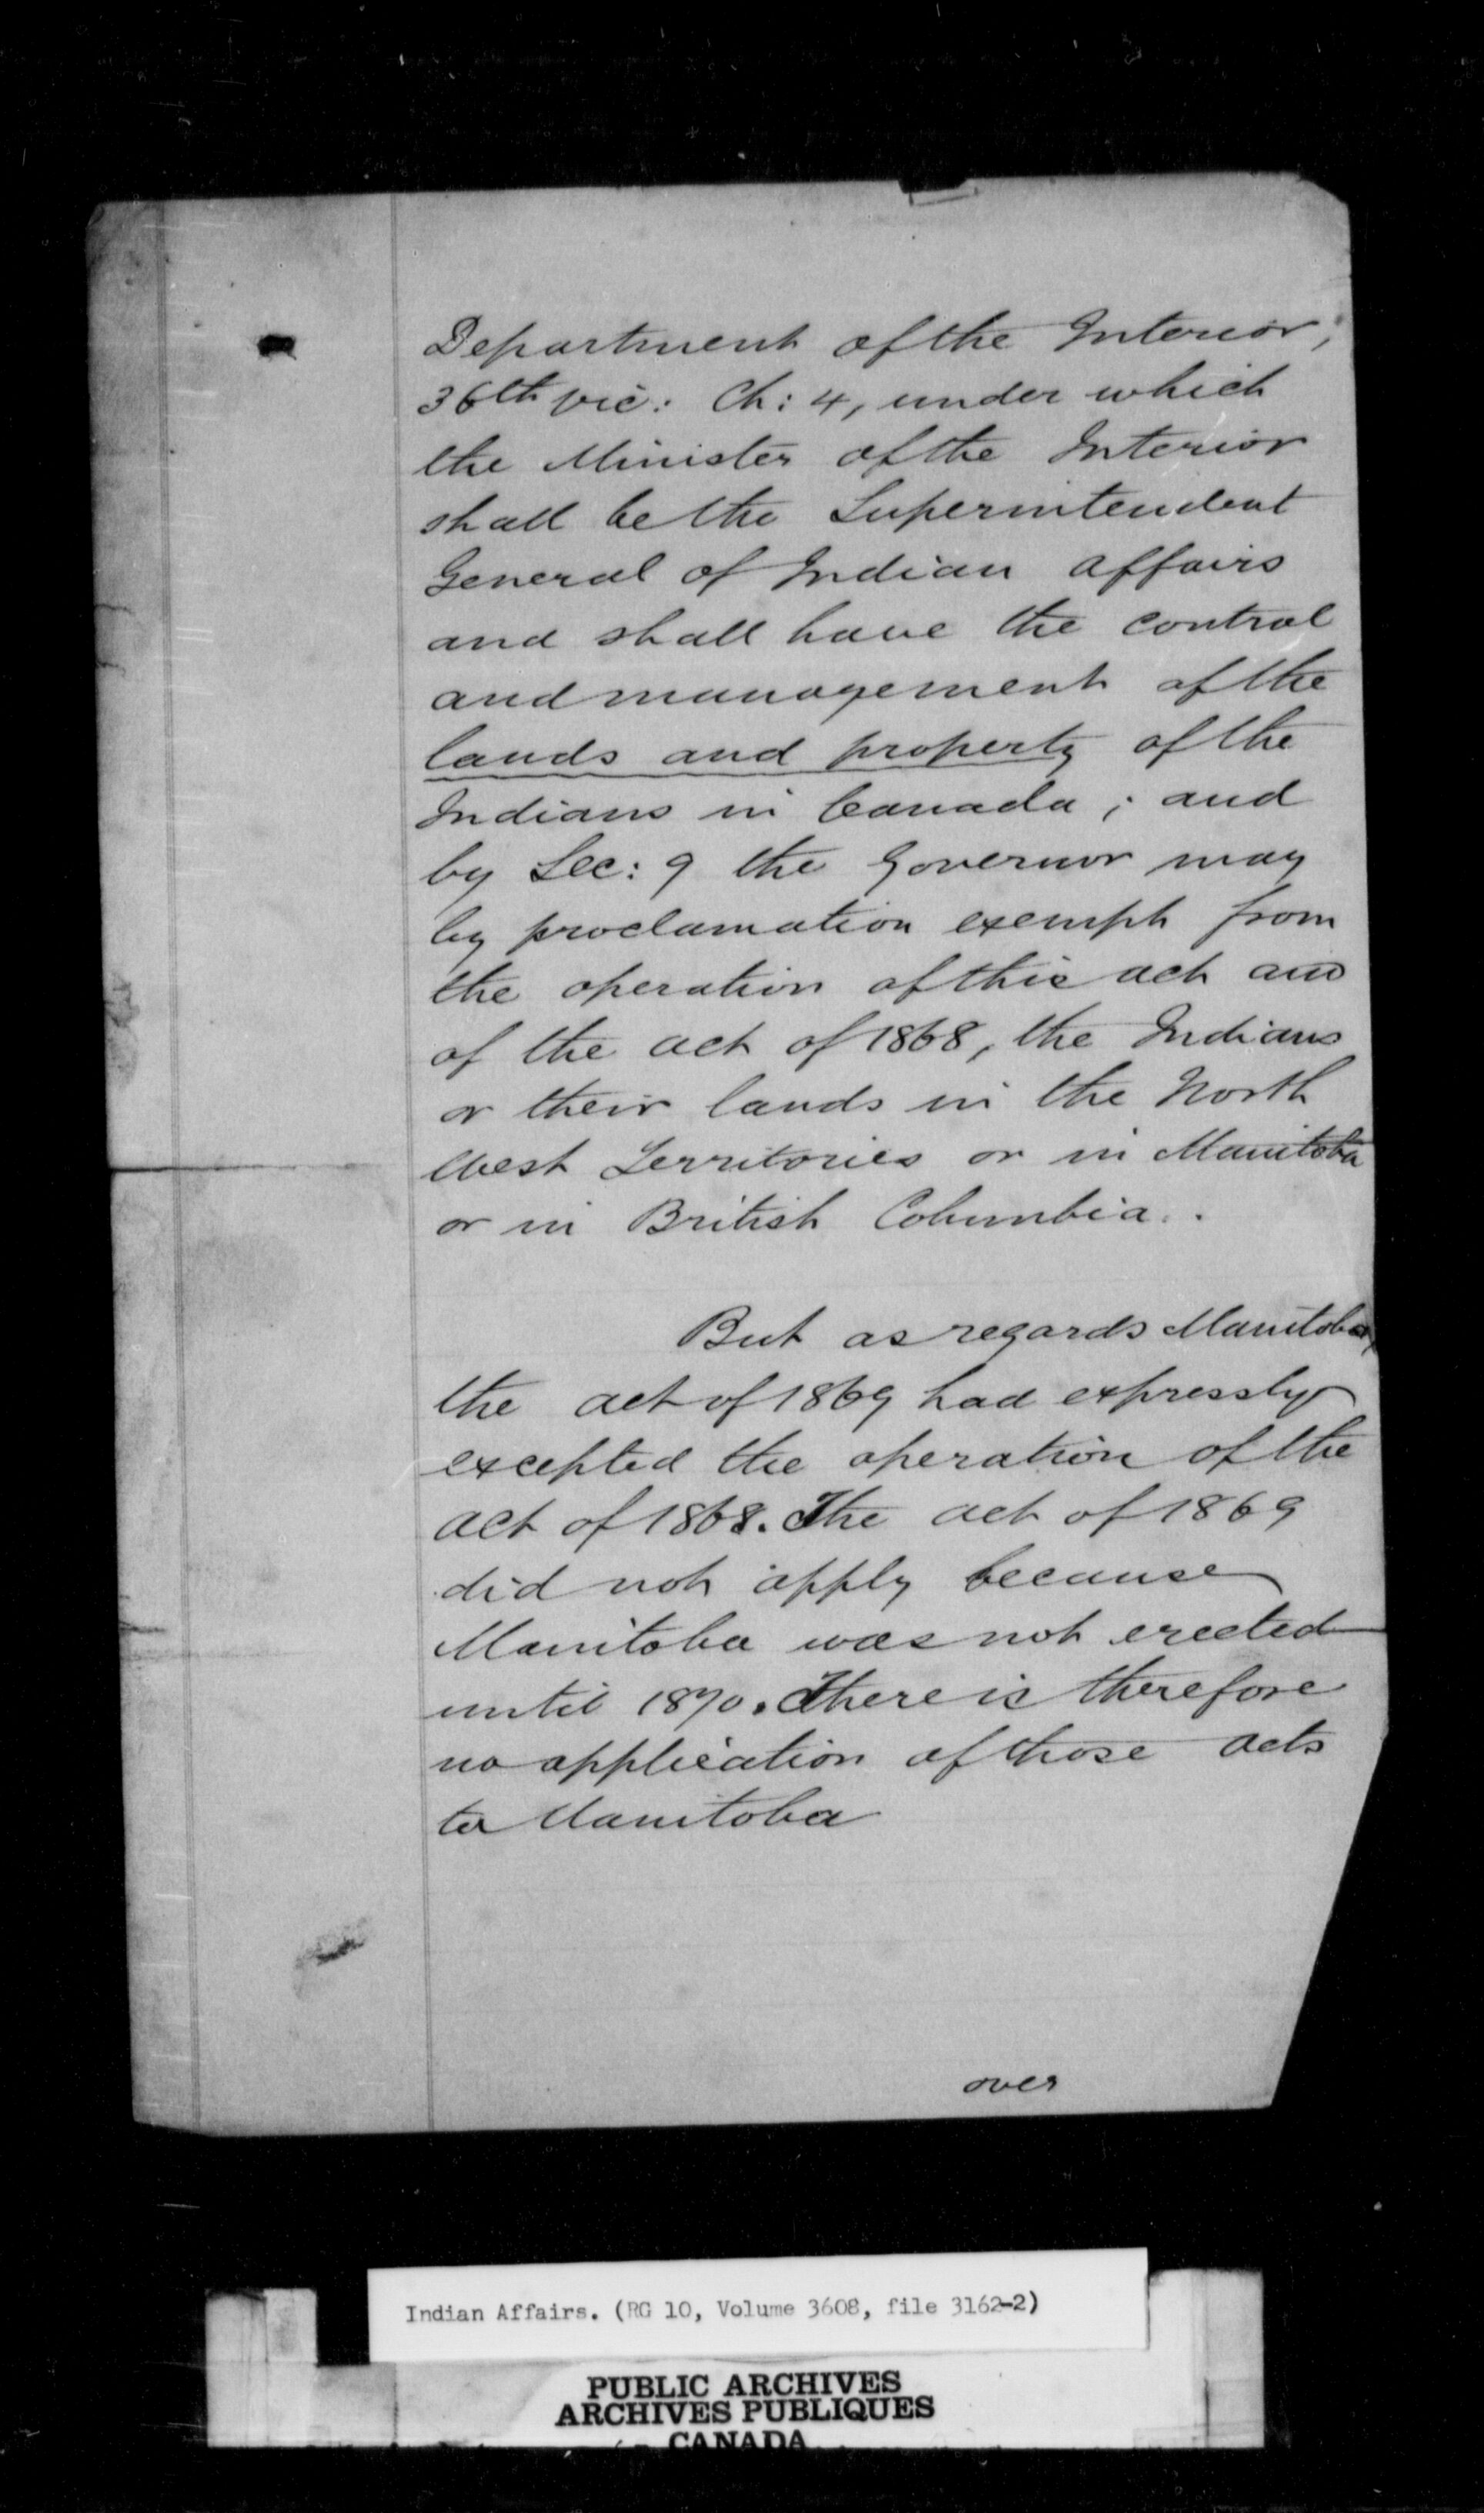 Department of the Interior,
36th Vic: Ch: 4, under which
the Minister of the Interior
shall be the Superintendent
General of Indian affairs
and shall have the control
and management of the
lands and property of the
Indians in Canada; and
by Sec: 9 the Governor may
by proclamation exempt from
the operation of this act and
of the act of 1868, the Indians
or their lands in the North
West Territories or in Manitoba
or in British Columbia.
But as regards Manitoba,
the act of 1869 had expressly
excepted the operation of the
act of 1868. The act of 1869
did not apply because
Manitoba was not erected
until 1870. There is therefore
no application of those acts
to Manitoba
over
Indian Affairs. (RG 10, Volume 3608, file 3162-2)
PUBLIC ARCHIVES
ARCHIVES PUBLIQUES
CANADA